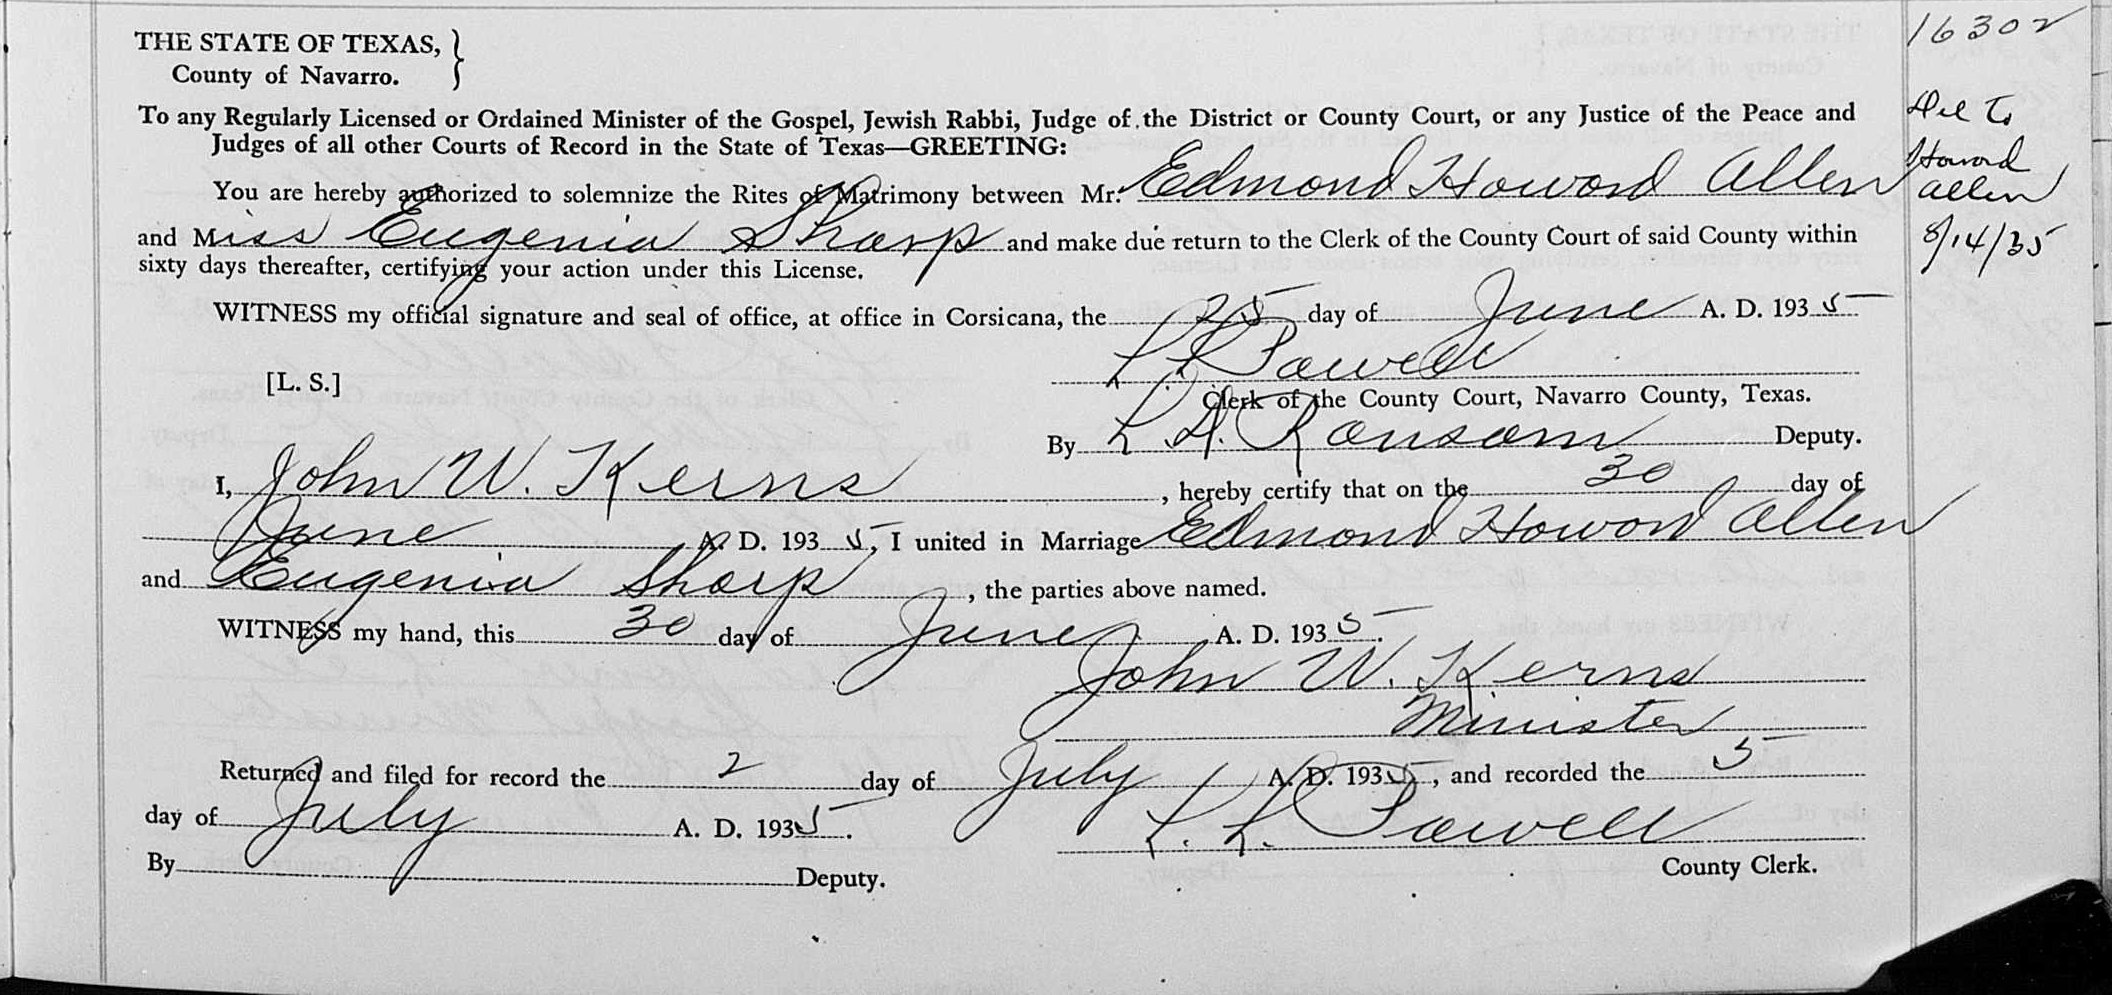 THE STATE OF TEXAS, }
County of Navarro.
To any Regularly Licensed or Ordained Minister of the Gospel, Jewish Rabbi, Judge of the District or County Court, or any Justice of the Peace and
Judges of all other Courts of Record in the State of Texas—GREETING:
You are hereby authorized to solemnize the Rites of Matrimony between Mr. Edmond Howard Allen
and Miss Eugenia Sharp and make due return to the Clerk of the County Court of said County within
sixty days thereafter, certifying your action under this License.
WITNESS my official signature and seal of office, at office in Corsicana, the 25 day of June A. D. 1935
L. L. Powell
[L. S.]
Clerk of the County Court, Navarro County, Texas.
By L. H. Ransom Deputy.
I, John W. Kerns, hereby certify that on the 30 day of
June A. D. 1935, I united in Marriage Edmond Howard Allen
and Eugenia Sharp, the parties above named.
WITNESS my hand, this 30 day of June A. D. 1935.
John W. Kerns
Minister
Returned and filed for record the 2 day of July A. D. 1935, and recorded the 5
day of July A. D. 1935.
L. L. Powell
By Deputy.
County Clerk.
16302
Del to
Howard
Allen
8/14/35